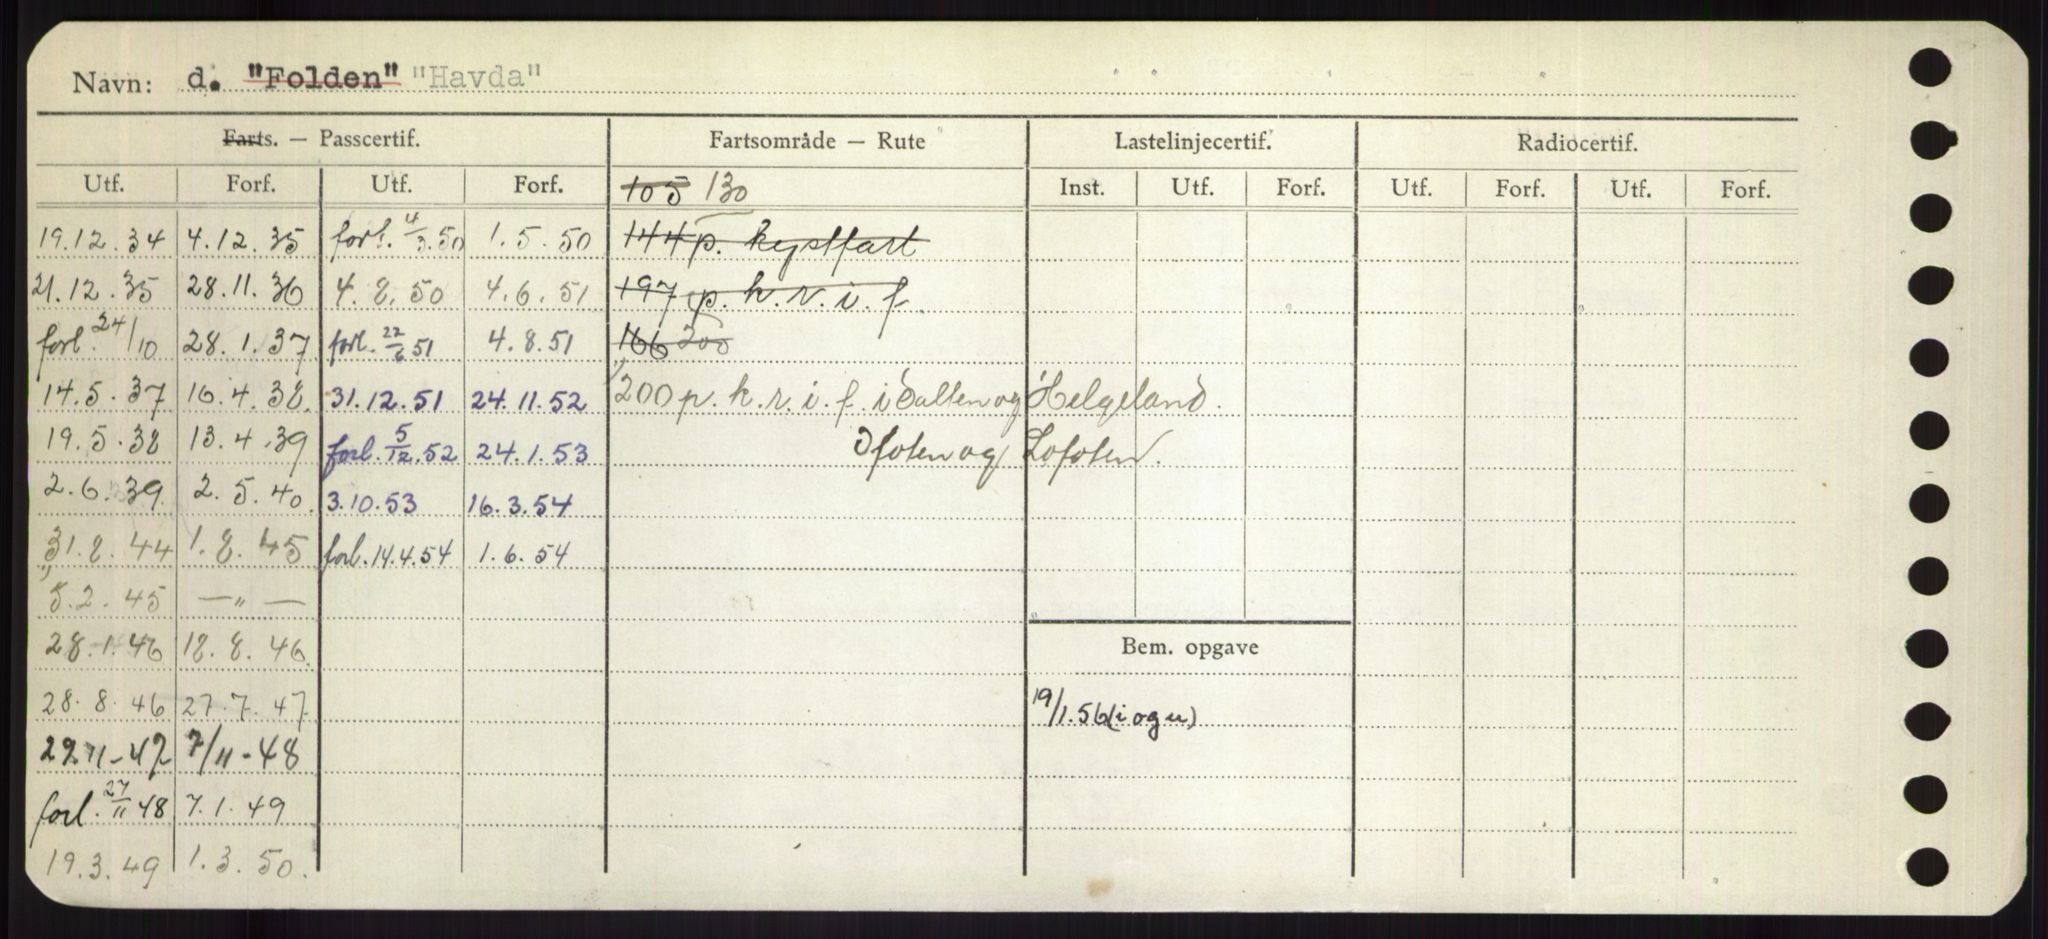 Navn: d. "Folden" "Havda"
Farts. — Passcertif. Fartsområde — Rute Lastelinjecertif. Radiocertif.
Utf. Forf. Utf. Forf. 105 130 Inst. Utf. Forf. Utf. Forf. Utf. Forf.
19.12.34 4.12.35 forl. 4/3.50 1.5.50 144 p. kystfart
21.12.35 28.11.36 4.8.50 4.6.51 197 p. k. r. i. f.
forl. 24/10 28.1.37 forl. 22/6 51 4.8.51 166 200
14.5.37 16.4.38 31.12.51 24.11.52 200 p. k. r. i. f. i Salten og Helgeland.
19.5.38 13.4.39 forl. 5/12.52 24.1.53 Ofoten og Lofoten.
2.6.39 2.5.40 3.10.53 16.3.54
31.8.44 1.8.45 forl. 14.4.54 1.6.54
5.2.45 —„—
28.1.46 18.8.46 Bem. opgave
28.8.46 27.7.47 19/1.56 (i og u)
22 11-47 7/11-48
forl. 27/11 48 7.1.49
19.3.49 1.3.50.